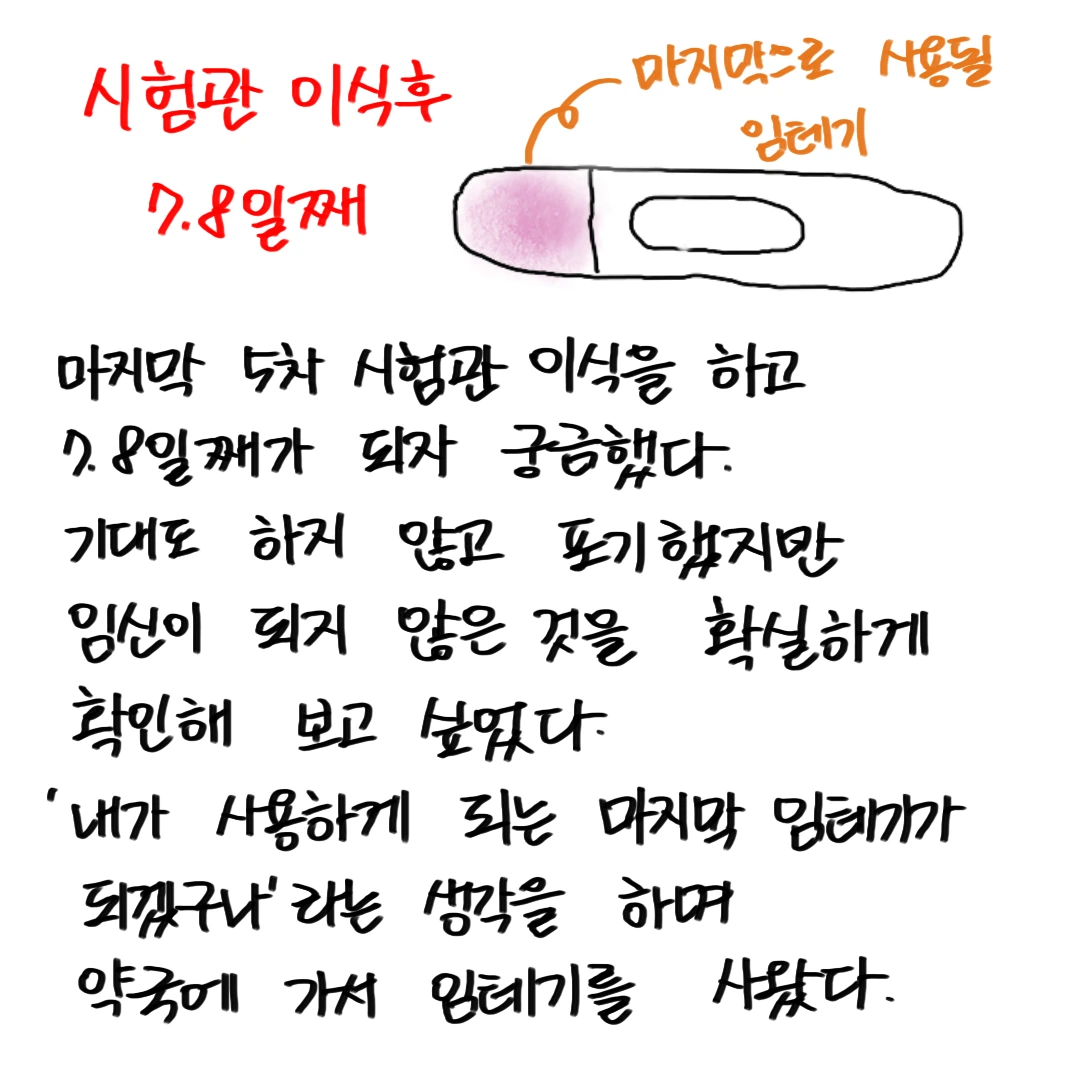 시험관 이식후
7.8일째
마지막으로 사용될
임테기
마지막 5차 시험관 이식을 하고
7.8일째가 되자 궁금했다.
기대도 하지 않고 포기했지만
임신이 되지 않은 것을 확실하게
확인해 보고 싶었다.
'내가 사용하게 되는 마지막 임테기가
되겠구나'라는 생각을 하며
약국에 가서 임테기를 사왔다.